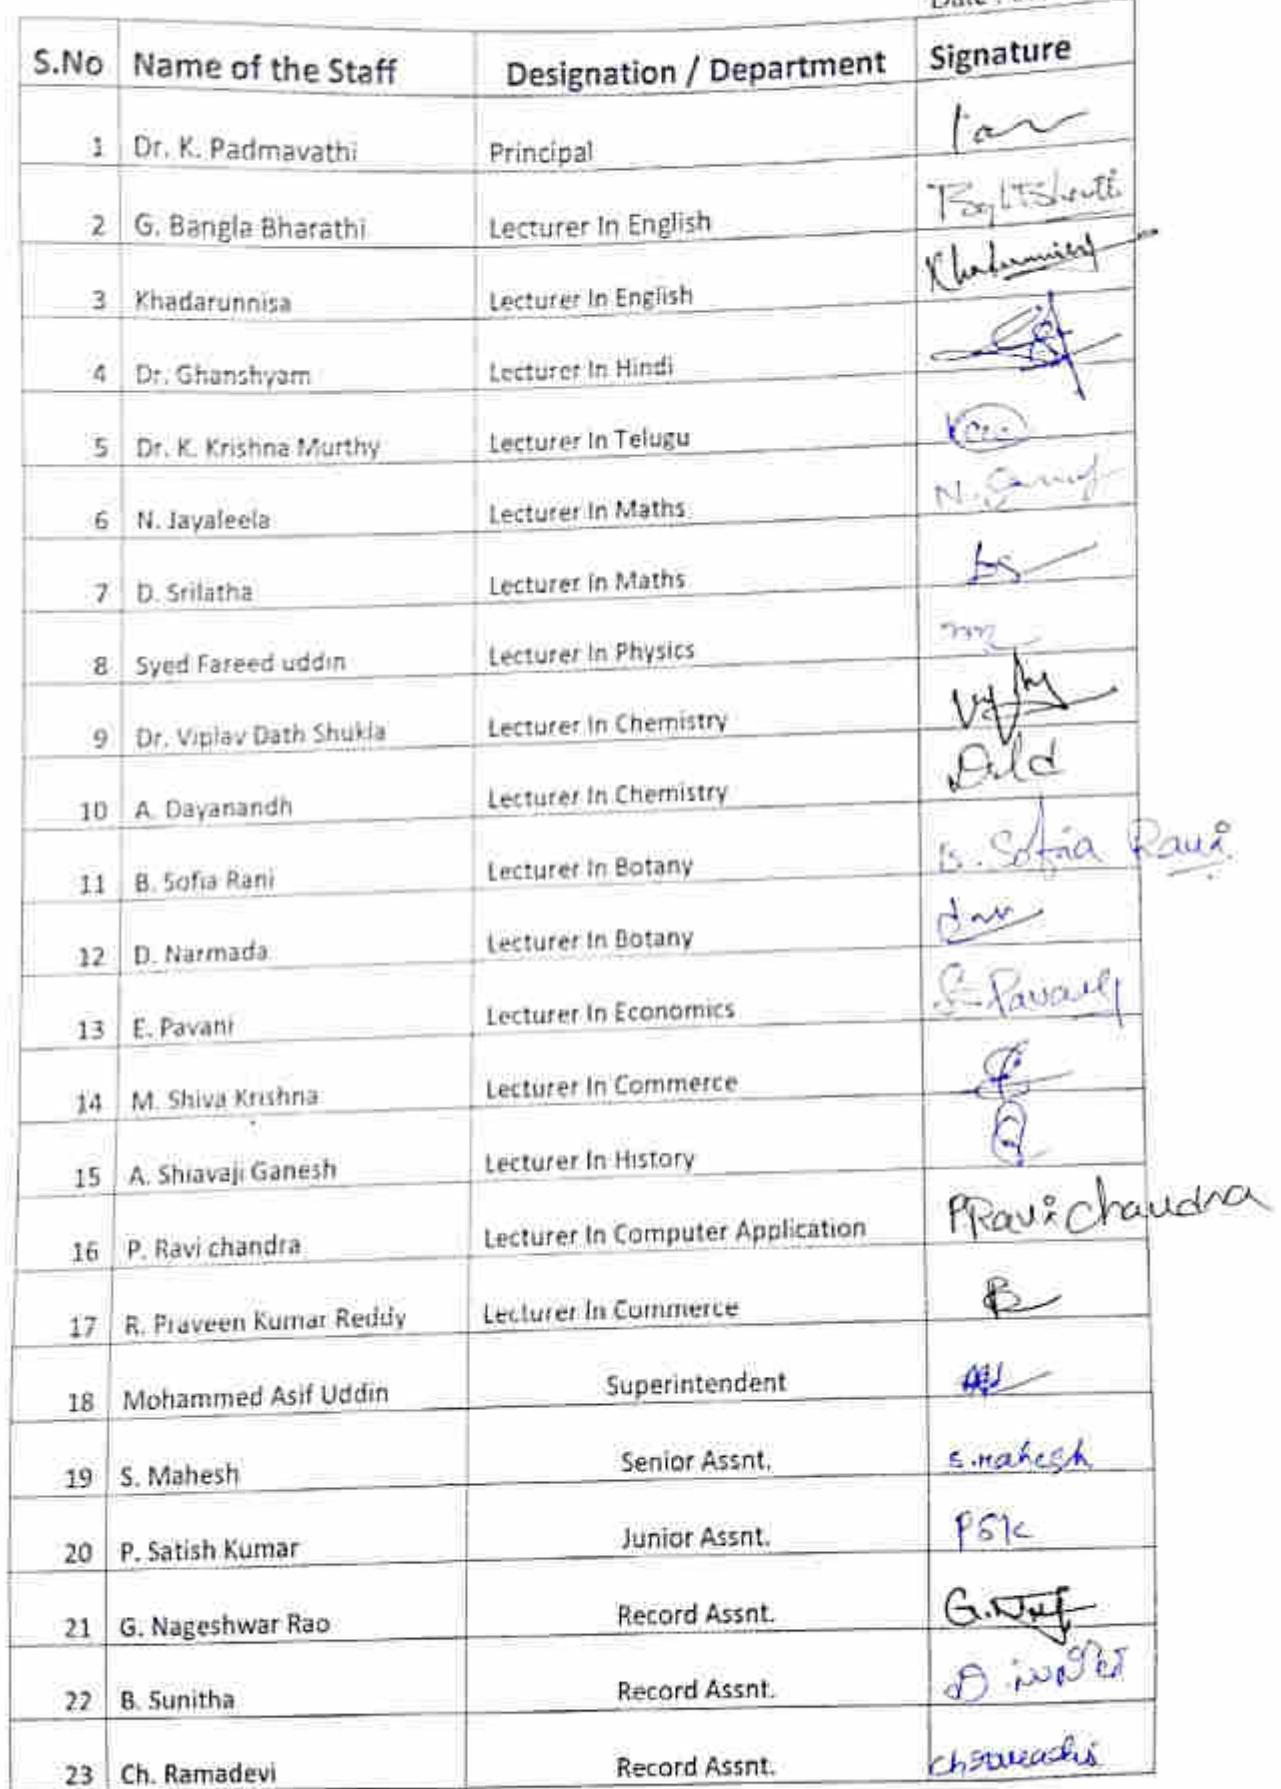 S.No Name of the Staff Designation / Department Signature
1 Dr. K. Padmavathi Principal
2 G. Bangla Bharathi Lecturer In English
3 Khadarunnisa Lecturer In English Khadarunnisa
4 Dr. Ghanshyam Lecturer In Hindi
5 Dr. K. Krishna Murthy Lecturer In Telugu
6 N. Jayaleela Lecturer In Maths
7 D. Srilatha Lecturer In Maths
8 Syed Fareed uddin Lecturer In Physics
9 Dr. Viplav Dath Shukla Lecturer In Chemistry
10 A. Dayanandh Lecturer In Chemistry
11 B. Sofia Rani Lecturer In Botany B. Sofria Rani
12 D. Narmada Lecturer In Botany
13 E. Pavani Lecturer In Economics E. Pavani
14 M. Shiva Krishna Lecturer In Commerce
15 A. Shiavaji Ganesh Lecturer In History
16 P. Ravi chandra Lecturer In Computer Application P Ravi Chandra
17 R. Praveen Kumar Reddy Lecturer In Commerce
18 Mohammed Asif Uddin Superintendent
19 S. Mahesh Senior Assnt. S. Mahesh
20 P. Satish Kumar Junior Assnt. PSK
21 G. Nageshwar Rao Record Assnt.
22 B. Sunitha Record Assnt.
23 Ch. Ramadevi Record Assnt.